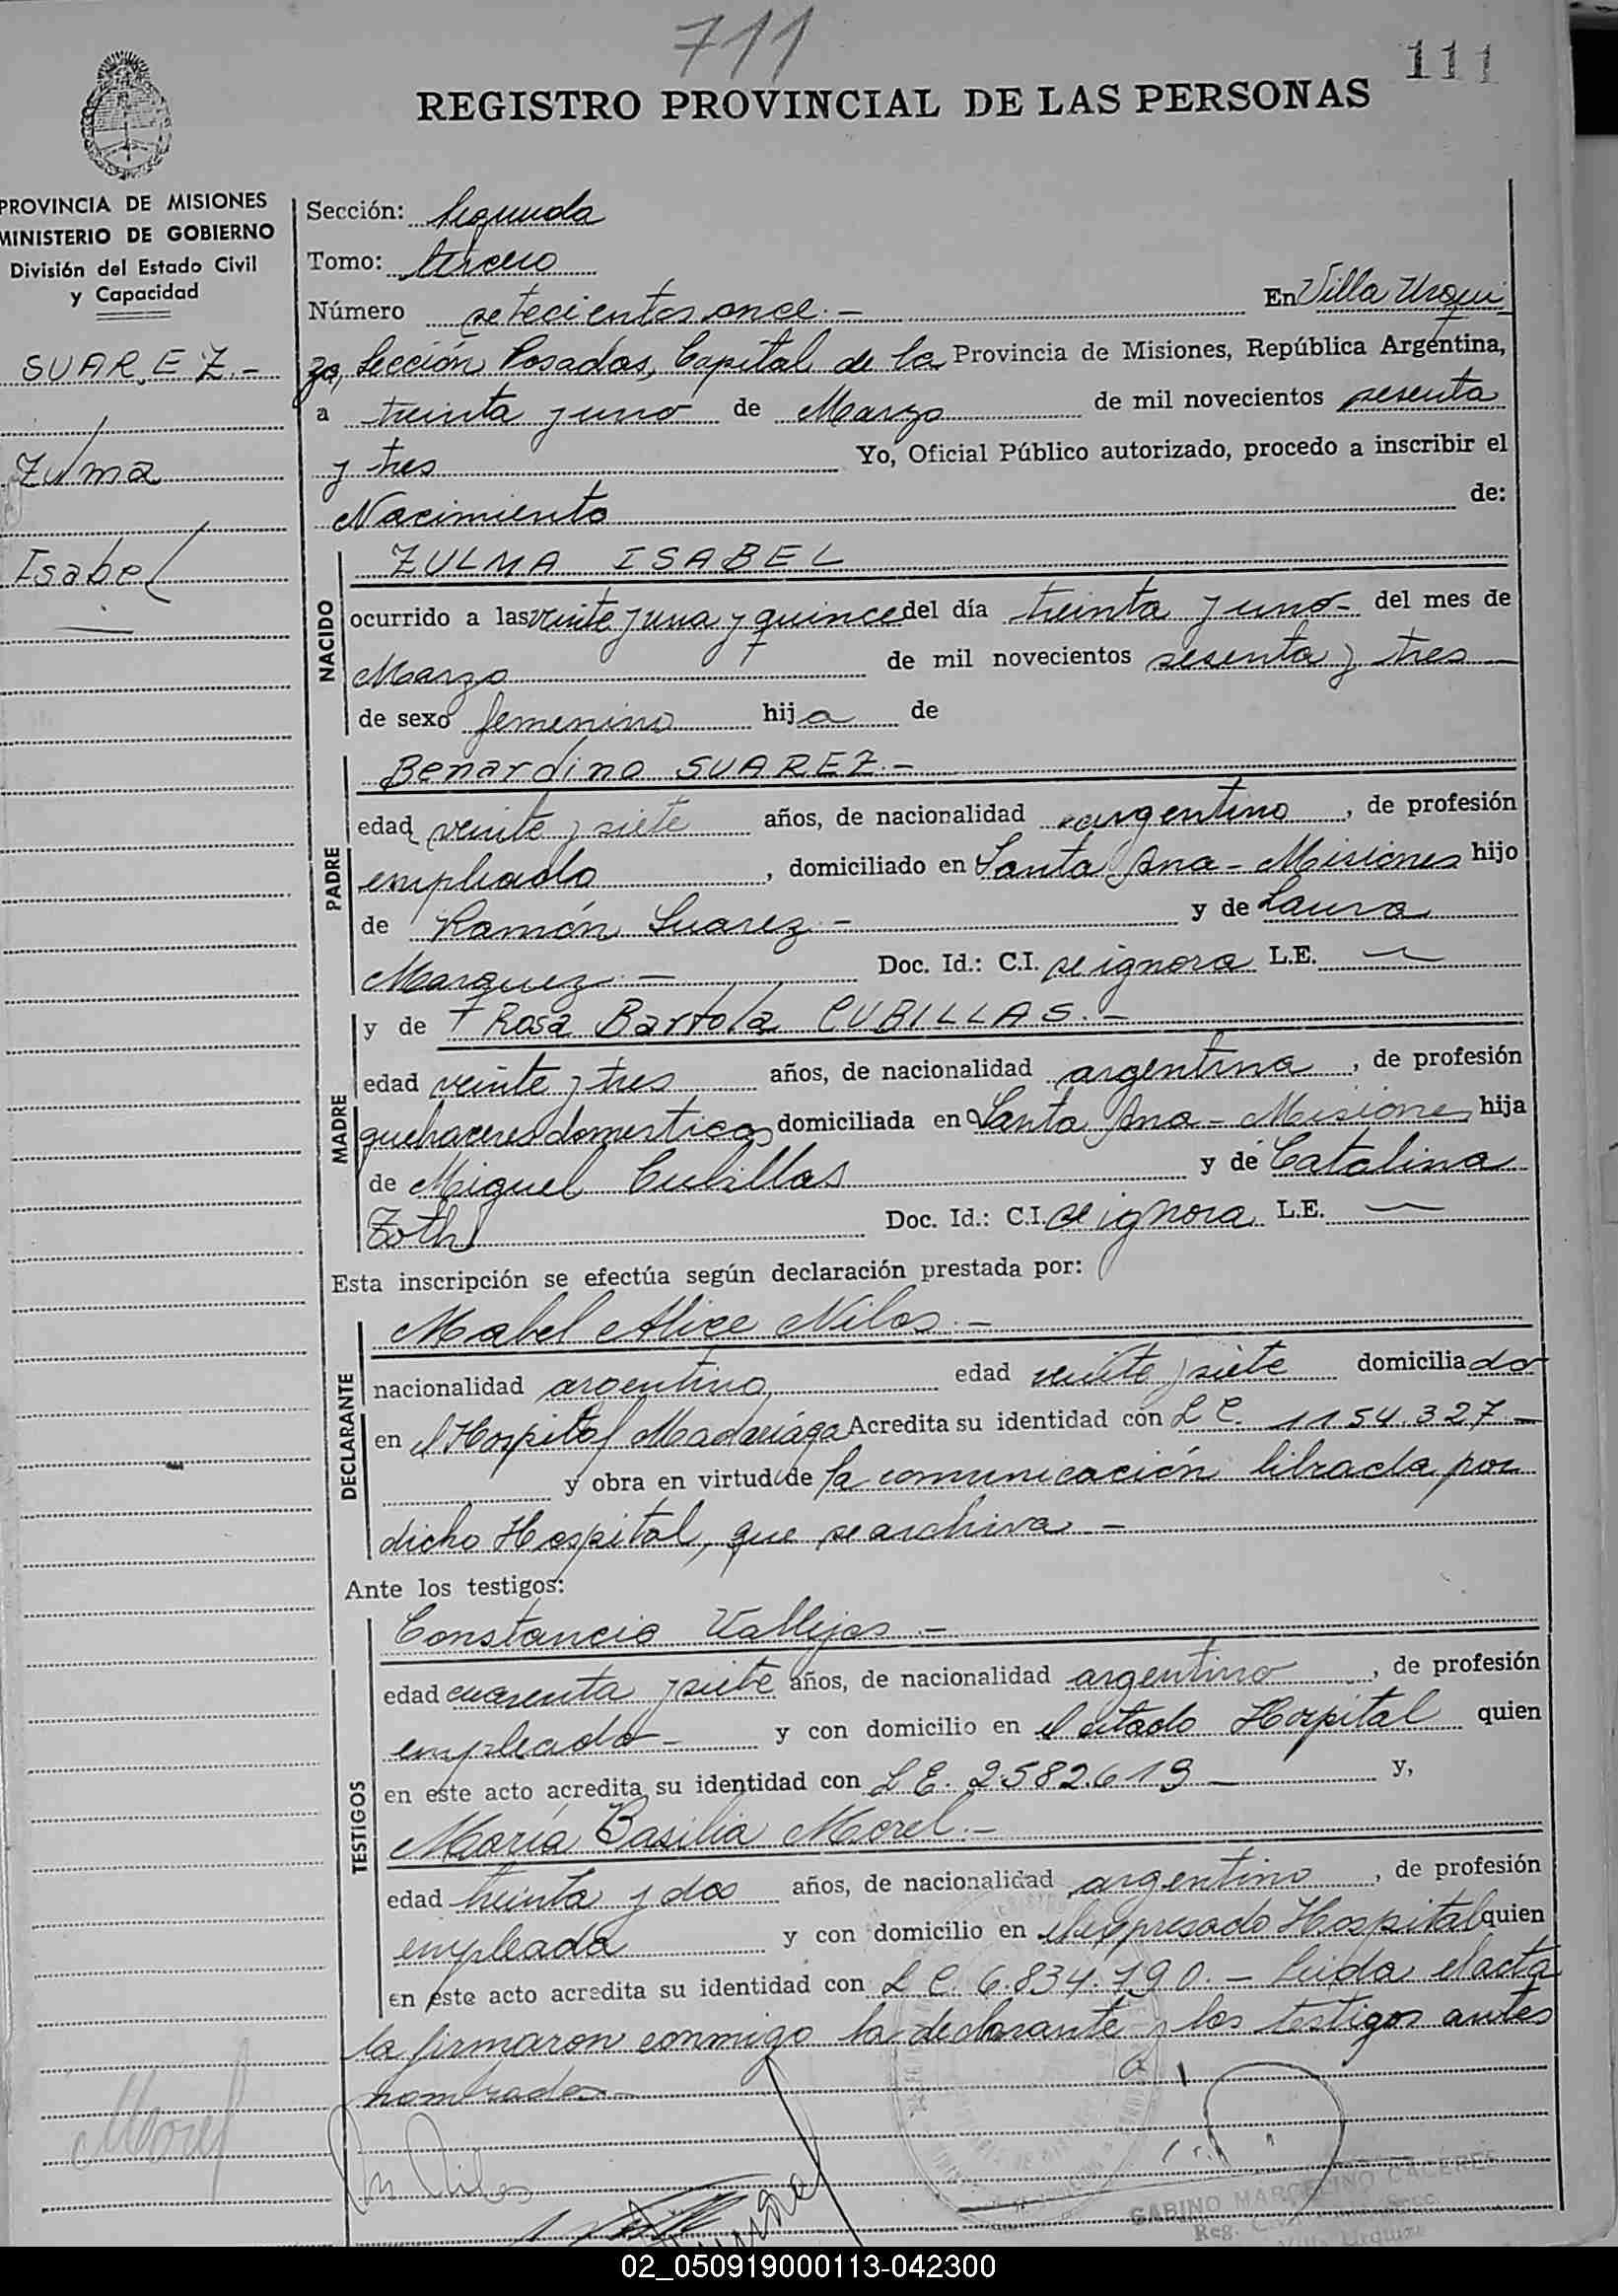 711
111
REGISTRO PROVINCIAL DE LAS PERSONAS
PROVINCIA DE MISIONES
MINISTERIO DE GOBIERNO
División del Estado Civil
y Capacidad
SUAREZ.-
Zulma
Isabel
Sección: Segunda
Tomo: tercero
Número setecientos once.- En Villa Urqui
za, Sección Posadas, Capital de la Provincia de Misiones, República Argentina,
a treinta y uno de Marzo de mil novecientos sesenta
y tres Yo, Oficial Público autorizado, procedo a inscribir el
Nacimiento de:
NACIDO
ZULMA ISABEL
ocurrido a las veinte y una y quince del día treinta y uno- del mes de
Marzo de mil novecientos sesenta y tres
de sexo femenino hija de
PADRE
Benardino SUAREZ.-
edad veinte y siete años, de nacionalidad argentino, de profesión
empleado, domiciliado en Santa Ana - Misiones hijo
de Ramón Suarez.- y de Laura
Marquez.- Doc. Id.: C.I. se ignora L.E. —
MADRE
y de Rosa Bartola CUBILLAS.-
edad veinte y tres años, de nacionalidad argentina, de profesión
quehaceres domesticos domiciliada en Santa Ana - Misiones hija
de Miguel Cubillas y de Catalina
Zoth Doc. Id.: C.I. se ignora L.E. —
Esta inscripción se efectúa según declaración prestada por:
DECLARANTE
Mabel Alice Nilos.-
nacionalidad argentina edad veinte y siete domiciliado
en el Hospital Madariaga Acredita su identidad con L C. 1154.327 -
y obra en virtud de la comunicación librada por
dicho Hospital, que se archiva -
Ante los testigos:
TESTIGOS
Constancio Vallejos.-
edad cuarenta y siete años, de nacionalidad argentino, de profesión
empleado- y con domicilio en el citado Hospital quien
en este acto acredita su identidad con L E. 2.582.619 - y,
María Basilia Morel.-
edad treinta y dos años, de nacionalidad argentino, de profesión
empleada y con domicilio en el expresado Hospital quien
en este acto acredita su identidad con L C. 6.834.790.- Leida el acta
la firmaron conmigo la declarante y los testigos antes
nombrados
Morel
M Nilos
GABINO MARCELINO CACERES
Reg.
Villa Urquiza
02_050919000113-042300